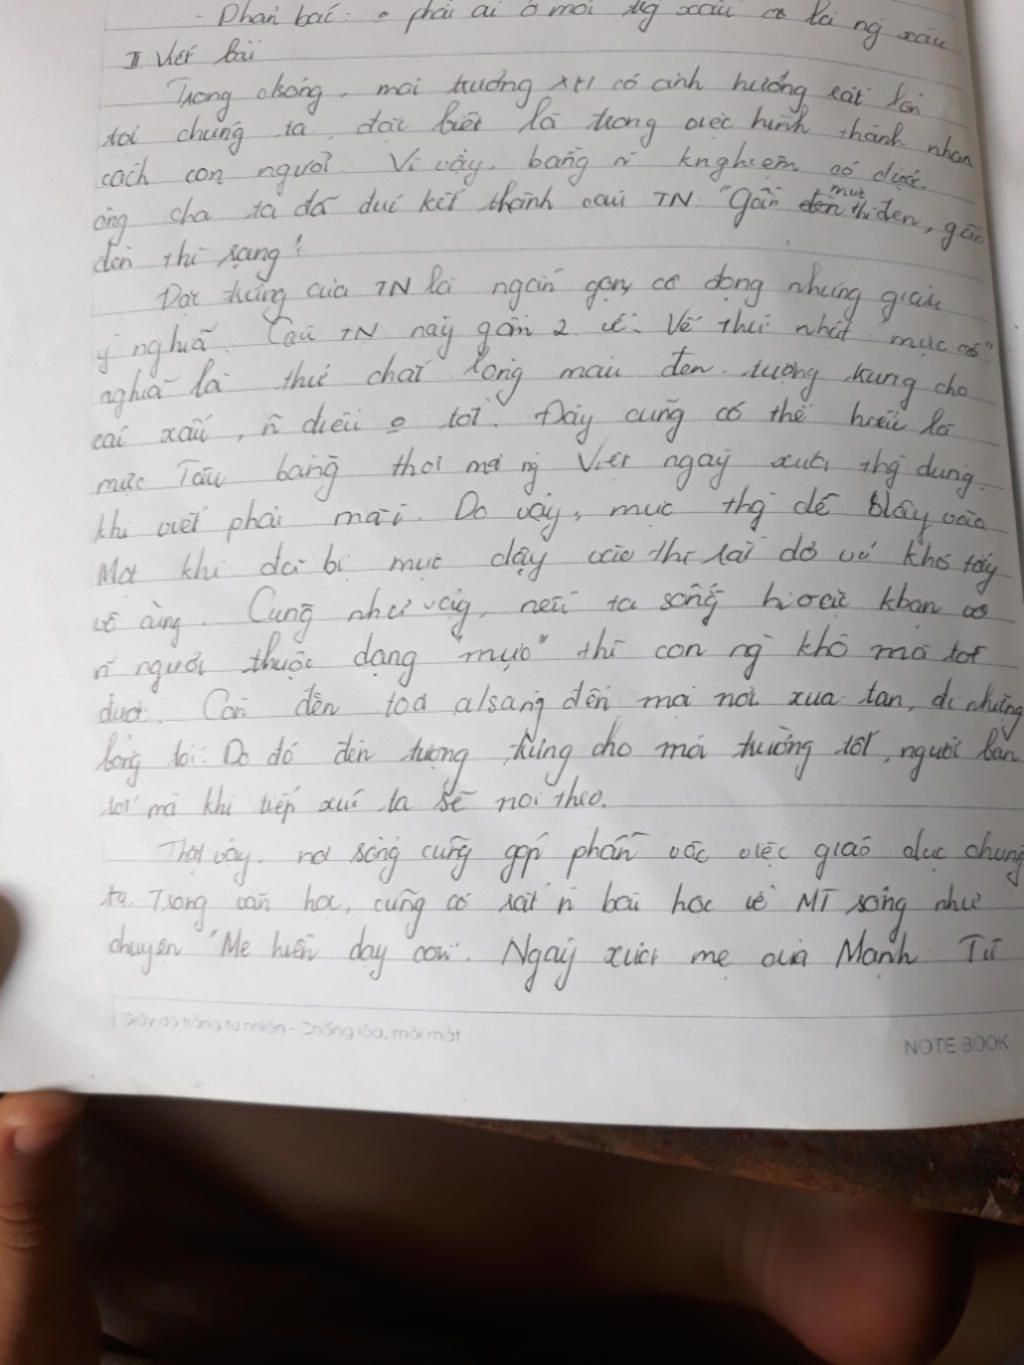 - Phản bác: o phải ai ở môi trg xấu cs là ng xấu
II. Viết bài
Trong csống, môi trường XH có ảnh hưởng rất lớn
tới chúng ta, đặc biệt là trong việc hình thành nhân
cách con người. Vì vậy, bằng n~ knghiệm có được
ông cha ta đã đúc kết thành câu TN "Gần mực thì đen, gần
đèn thì sạng".
Đặc trưng của TN là ngắn gọn, cô đọng nhưng giàu
ý nghĩa. Câu TN này gồm 2 vế. Vế thứ nhất "mực" có
nghĩa là thứ chất lỏng màu đen tượng trưng cho
cái xấu, n~ điều o tốt. Đây cũng có thể hiểu là
mực Tàu bằng thỏi mà ng Việt ngày xưa thg dùng.
Khi viết phải mài. Do vậy, mực thg dễ dây vào
Một khi đã bị mực dây vào thì rất dơ và khó tẩy
vô cùng. Cũng như vậy, nếu ta sống hoặc kbạn vs
n~ người thuộc dạng "mực" thì con ng khó mà tốt
được. Còn đèn toả a/sáng đến mọi nơi xua tan đi những
bóng tối. Do đó đèn tượng trưng cho môi trường tốt, người bạn
tốt mà khi tiếp xúc ta sẽ noi theo.
Thật vậy, nơi sống cũng góp phần vào việc giáo dục chúng
ta. Trong văn học, cũng có rất n~ bài học về MT sống như
chuyện "Mẹ hiền dạy con". Ngày xưa mẹ của Mạnh Tử
Giấy độ trắng tự nhiên - Chống lóa, mỏi mắt
NOTE BOOK